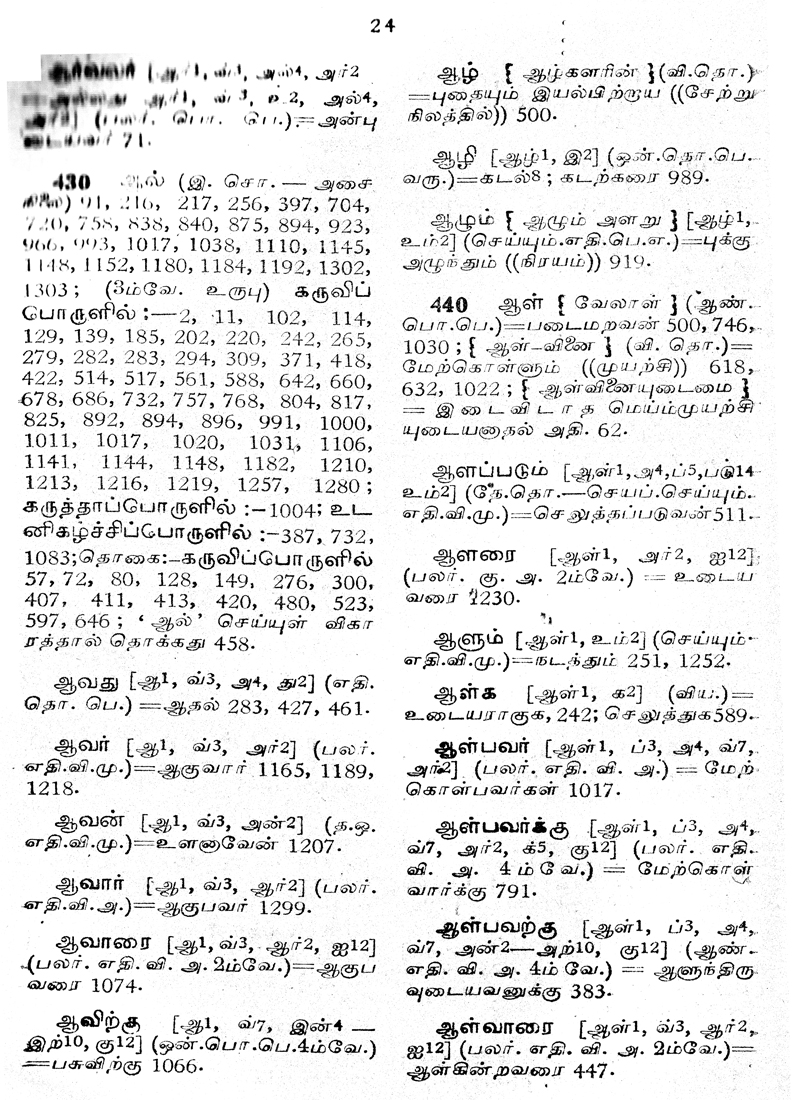 24
ஆர்வலர் [ஆர்1, வ்3, அல்4, அர்2
ஆர்1, வ்3, உ2, அல்4,
(பலர். பொ. பெ.)=அன்பு
டையவர் 71.
430 ஆல் (இ. சொ. — அசை
நிலை) 91, 216, 217, 256, 397, 704,
720, 758, 838, 840, 875, 894, 923,
966, 993, 1017, 1038, 1110, 1145,
1148, 1152, 1180, 1184, 1192, 1302,
1303; (3ம்வே. உருபு) கருவிப்
பொருளில்:—2, 11, 102, 114,
129, 139, 185, 202, 220, 242, 265,
279, 282, 283, 294, 309, 371, 418,
422, 514, 517, 561, 588, 642, 660,
678, 686, 732, 757, 768, 804, 817,
825, 892, 894, 896, 991, 1000,
1011, 1017, 1020, 1031, 1106,
1141, 1144, 1148, 1182, 1210,
1213, 1216, 1219, 1257, 1280;
கருத்தாப்பொருளில்:–1004; உட
னிகழ்ச்சிப்பொருளில்:–387, 732,
1083;தொகை:–கருவிப்பொருளில்
57, 72, 80, 128, 149, 276, 300,
407, 411, 413, 420, 480, 523,
597, 646; ‘ஆல்’ செய்யுள் விகா
ரத்தால் தொக்கது 458.
ஆவது [ஆ1, வ்3, அ4, து2] (எதி.
தொ. பெ.)=ஆதல் 283, 427, 461.
ஆவர் [ஆ1, வ்3, அர்2] (பலர்.
எதி.வி.மு.)=ஆகுவார் 1165, 1189,
1218.
ஆவன் [ஆ1, வ்3, அன்2] (த.ஒ.
எதி.வி.மு.)=உளனாவேன் 1207.
ஆவார் [ஆ1, வ்3, ஆர்2] (பலர்.
எதி.வி.அ.)=ஆகுபவர் 1299.
ஆவாரை [ஆ1, வ்3, ஆர்2, ஐ12]
(பலர். எதி. வி. அ. 2ம்வே.)=ஆகுப
வரை 1074.
ஆவிற்கு [ஆ1, வ்7, இன்4 —
இற்10, கு12] (ஒன்.பொ.பெ.4ம்வே.)
=பசுவிற்கு 1066.
ஆழ் { ஆழ்களரின் } (வி.தொ.)
=புதையும் இயல்பிற்றாய ((சேற்று
நிலத்தில்)) 500.
ஆழி [ஆழ்1, இ2] (ஒன்.தொ.பெ.
வரு.)=கடல்8; கடற்கரை 989.
ஆழும் { ஆழும் அளறு } [ஆழ்1,
உம்2] (செய்யும்.எதி.பெ.எ.)=புக்கு
அழுந்தும் ((நிரயம்)) 919.
440 ஆள் { வேலாள் } (ஆண்.
பொ.பெ.)=படைமறவன் 500, 746,
1030; { ஆள்–வினை } (வி. தொ.)=
மேற்கொள்ளும் ((முயற்சி)) 618,
632, 1022; { ஆள்வினையுடைமை }
= இடைவிடாத மெய்ம்முயற்சி
யுடையனாதல் அதி. 62.
ஆளப்படும் [ஆள்1,அ4,ப்5,படு14
உம்2] (தே.தொ.—செயப்.செய்யும்.
எதி.வி.மு.)=செலுத்தப்படுவன்511.
ஆளரை [ஆள்1, அர்2, ஐ12]
(பலர். கு. அ. 2ம்வே.) = உடைய
வரை 1230.
ஆளும் [ஆள்1, உம்2] (செய்யும்.
எதி.வி.மு.)=நடத்தும் 251, 1252.
ஆள்க [ஆள்1, க2] (விய.)=
உடையராகுக, 242; செலுத்துக589.
ஆள்பவர் [ஆள்1, ப்3, அ4, வ்7,
அர்2] (பலர். எதி. வி. அ.) = மேற்
கொள்பவர்கள் 1017.
ஆள்பவர்க்கு [ஆள்1, ப்3, அ4,
வ்7, அர்2, க்5, கு12] (பலர். எதி.
வி. அ. 4ம்வே.) = மேற்கொள்
வார்க்கு 791.
ஆள்பவற்கு [ஆள்1, ப்3, அ4,
வ்7, அன்2—அற்10, கு12] (ஆண்.
எதி. வி. அ. 4ம் வே.) = ஆளுந்திரு
வுடையவனுக்கு 383.
ஆள்வாரை [ஆள்1, வ்3, ஆர்2,
ஐ12] (பலர். எதி. வி. அ. 2ம்வே.)=
ஆள்கின்றவரை 447.